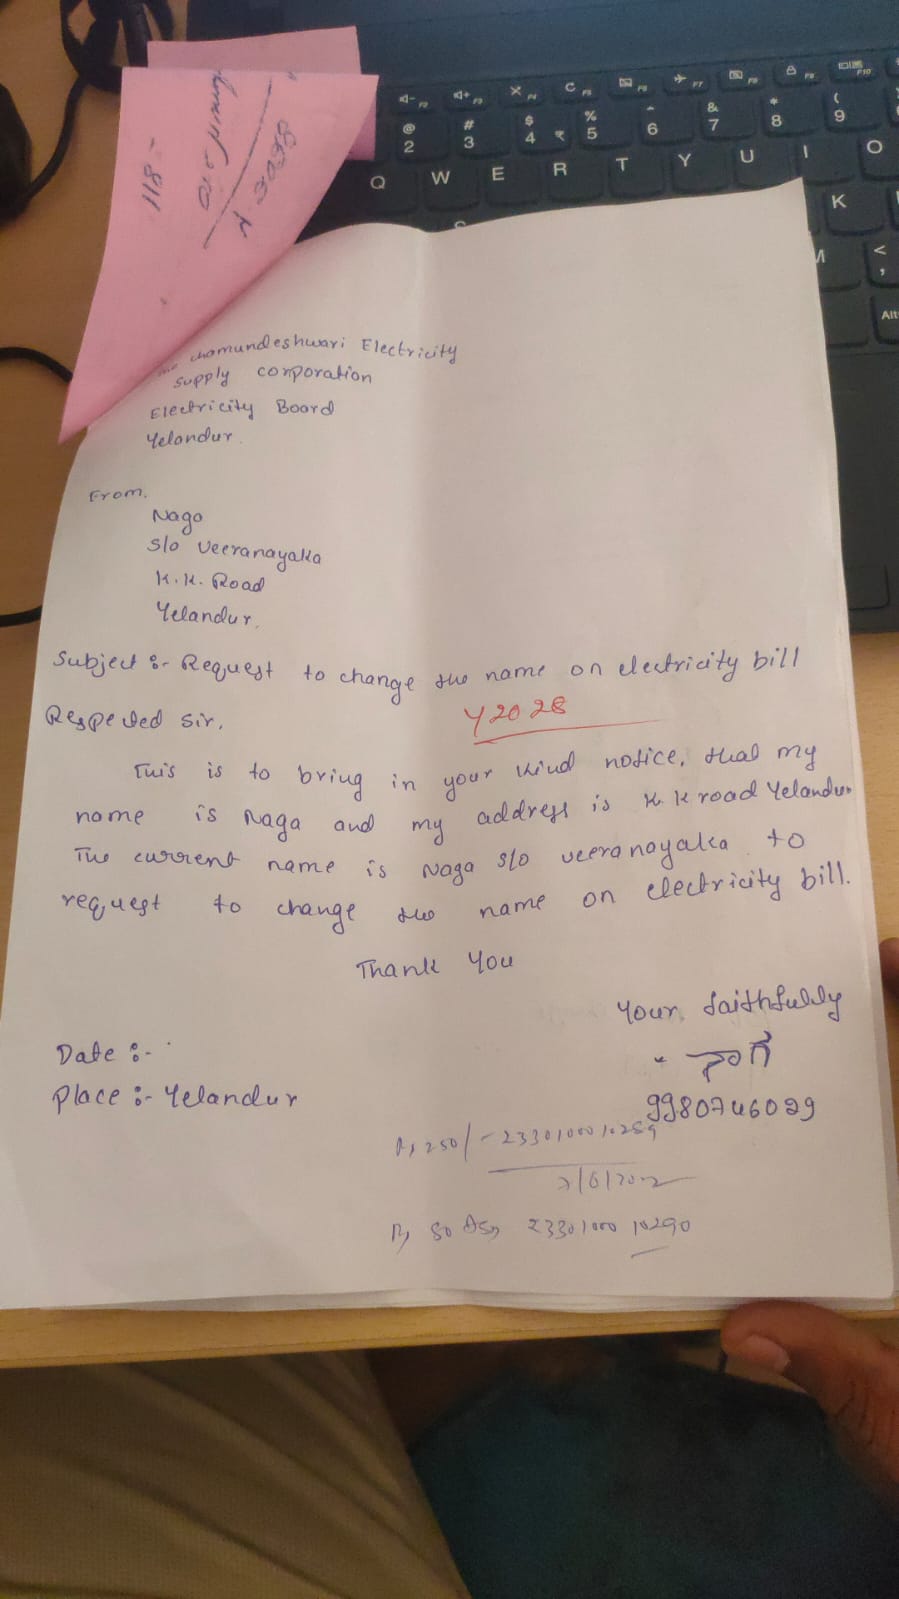 Chamundeshwari Electricity
Supply corporation
Electricity Board
Yelandur.
From,
Naga
S/o Veeranayaka
K.K. Road
Yelandur.
Subject :- Request to change the name on electricity bill
Respected Sir,
Y2028
This is to bring in your kind notice, that my
name is Naga and my address is K K road Yelandur
The current name is Naga S/o veeranayaka to
request to change the name on electricity bill.
Thank You
Your faithfully
ನಾಗ
9980746029
Date :-
Place :- Yelandur
Rs 250/- 23301000 10289
Rs 50 23301000 10290
- 811